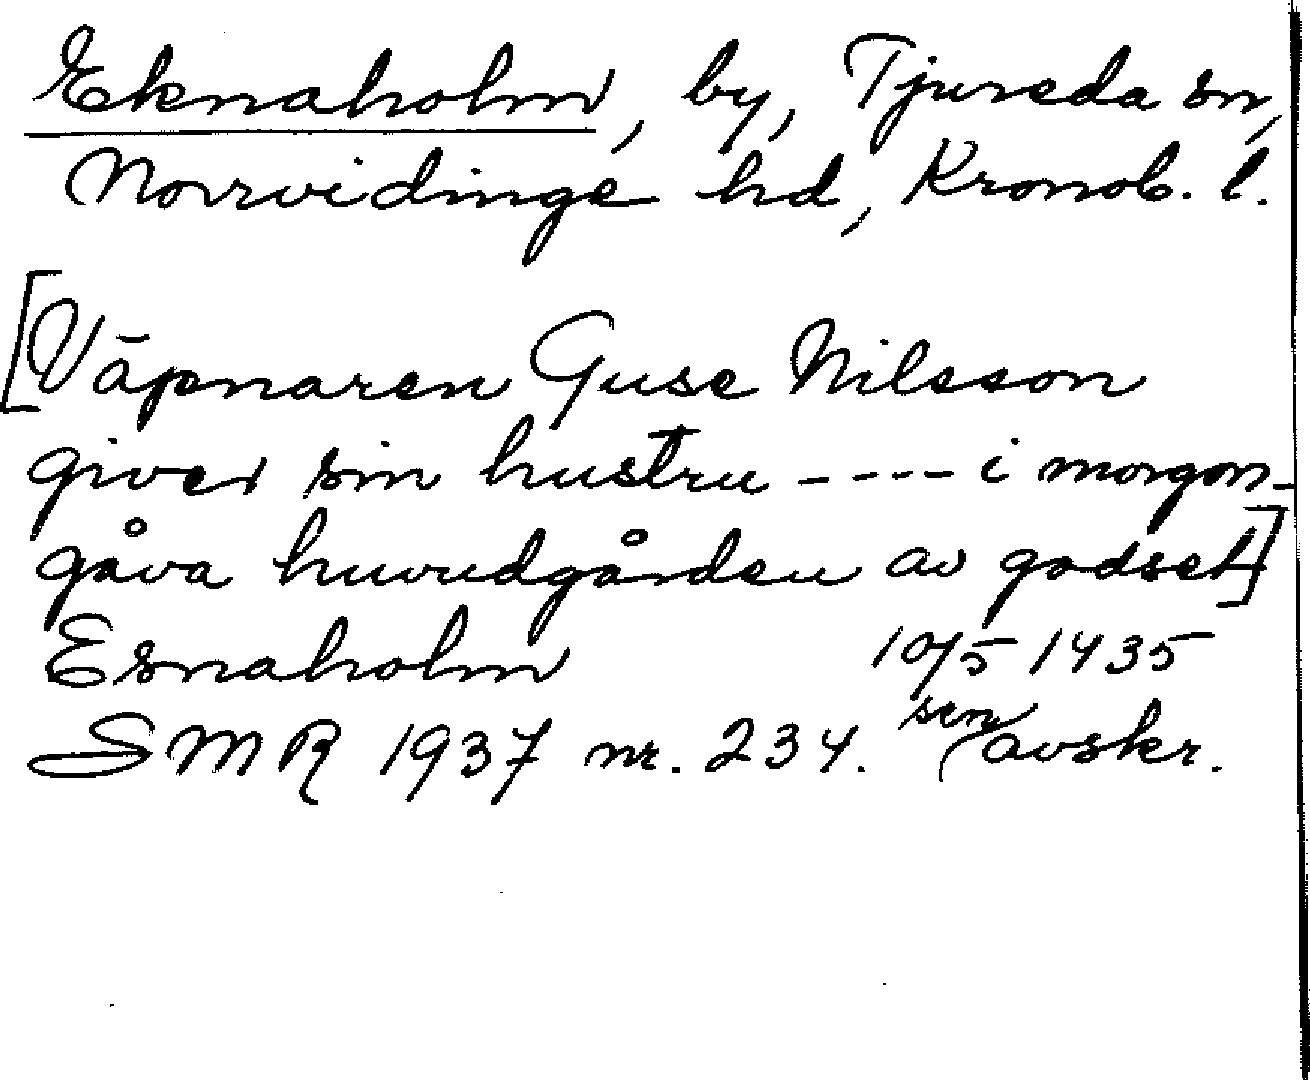 Eknaholm, by, Tjureda sn,
Norrvidinge hd, Kronob. l.
[Väpnaren Guse Nilsson
giver sin hustru ---- i morgon-
gåva huvudgården av godset]
Esnaholm 10/5 1435
SMR 1937 nr. 234. sen avskr.